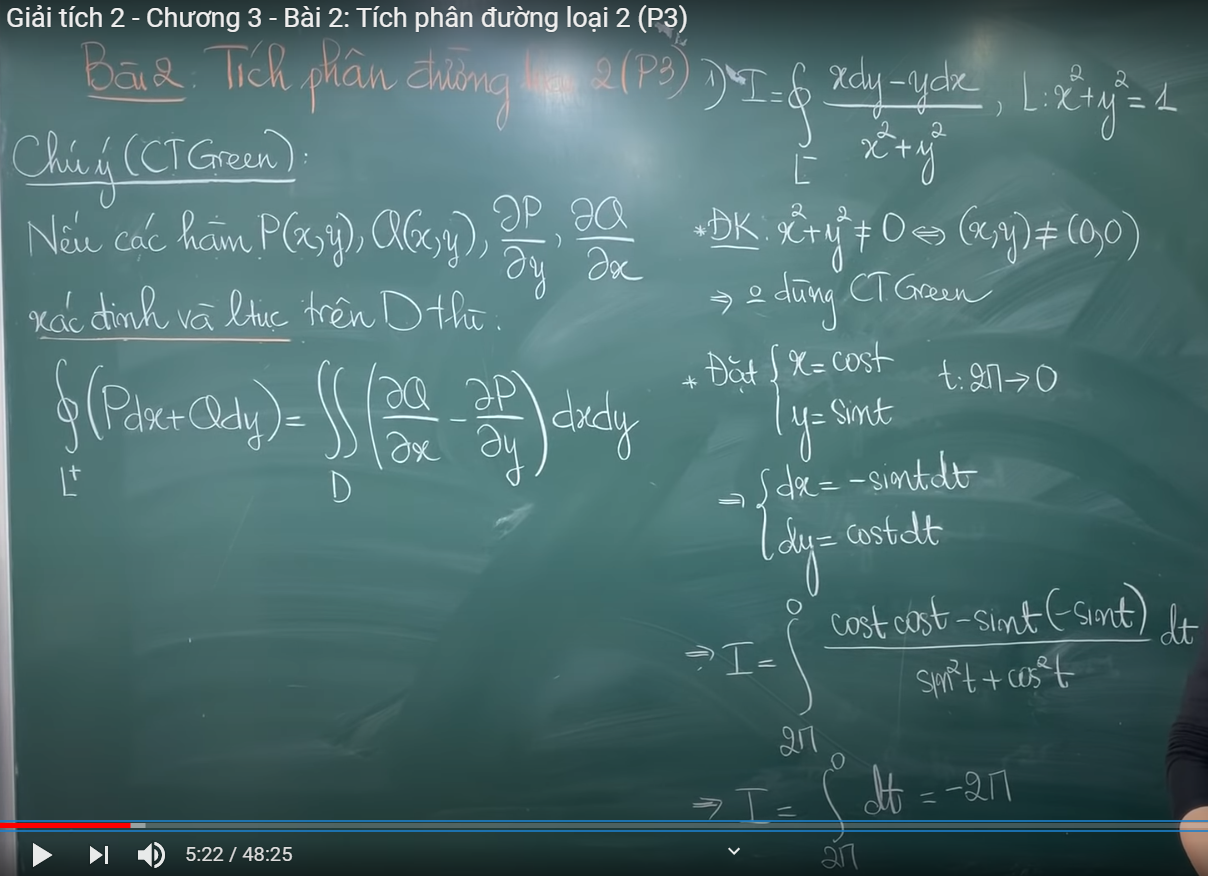 Giải tích 2 - Chương 3 - Bài 2: Tích phân đường loại 2 (P3)
Bài 2: Tích phân đường loại 2 (P3)
Chú ý (CT Green):
Nếu các hàm P(x,y), Q(x,y), ∂P/∂y, ∂Q/∂x
xác định và ltục trên D thì:
∮_{L⁺} (Pdx + Qdy) = ∬_D (∂Q/∂x - ∂P/∂y) dxdy
1) I = ∮_{L⁻} (xdy - ydx)/(x² + y²), L: x² + y² = 1
* ĐK: x² + y² ≠ 0 ⇔ (x,y) ≠ (0,0)
⇒ o dùng CT Green
* Đặt { x = cost
y = sint
t: 2π → 0
⇒ { dx = -sint dt
dy = cost dt
⇒ I = ∫_{2π}^{0} (cost cost - sint(-sint))/(sin²t + cos²t) dt
⇒ I = ∫_{2π}^{0} dt = -2π
5:22 / 48:25